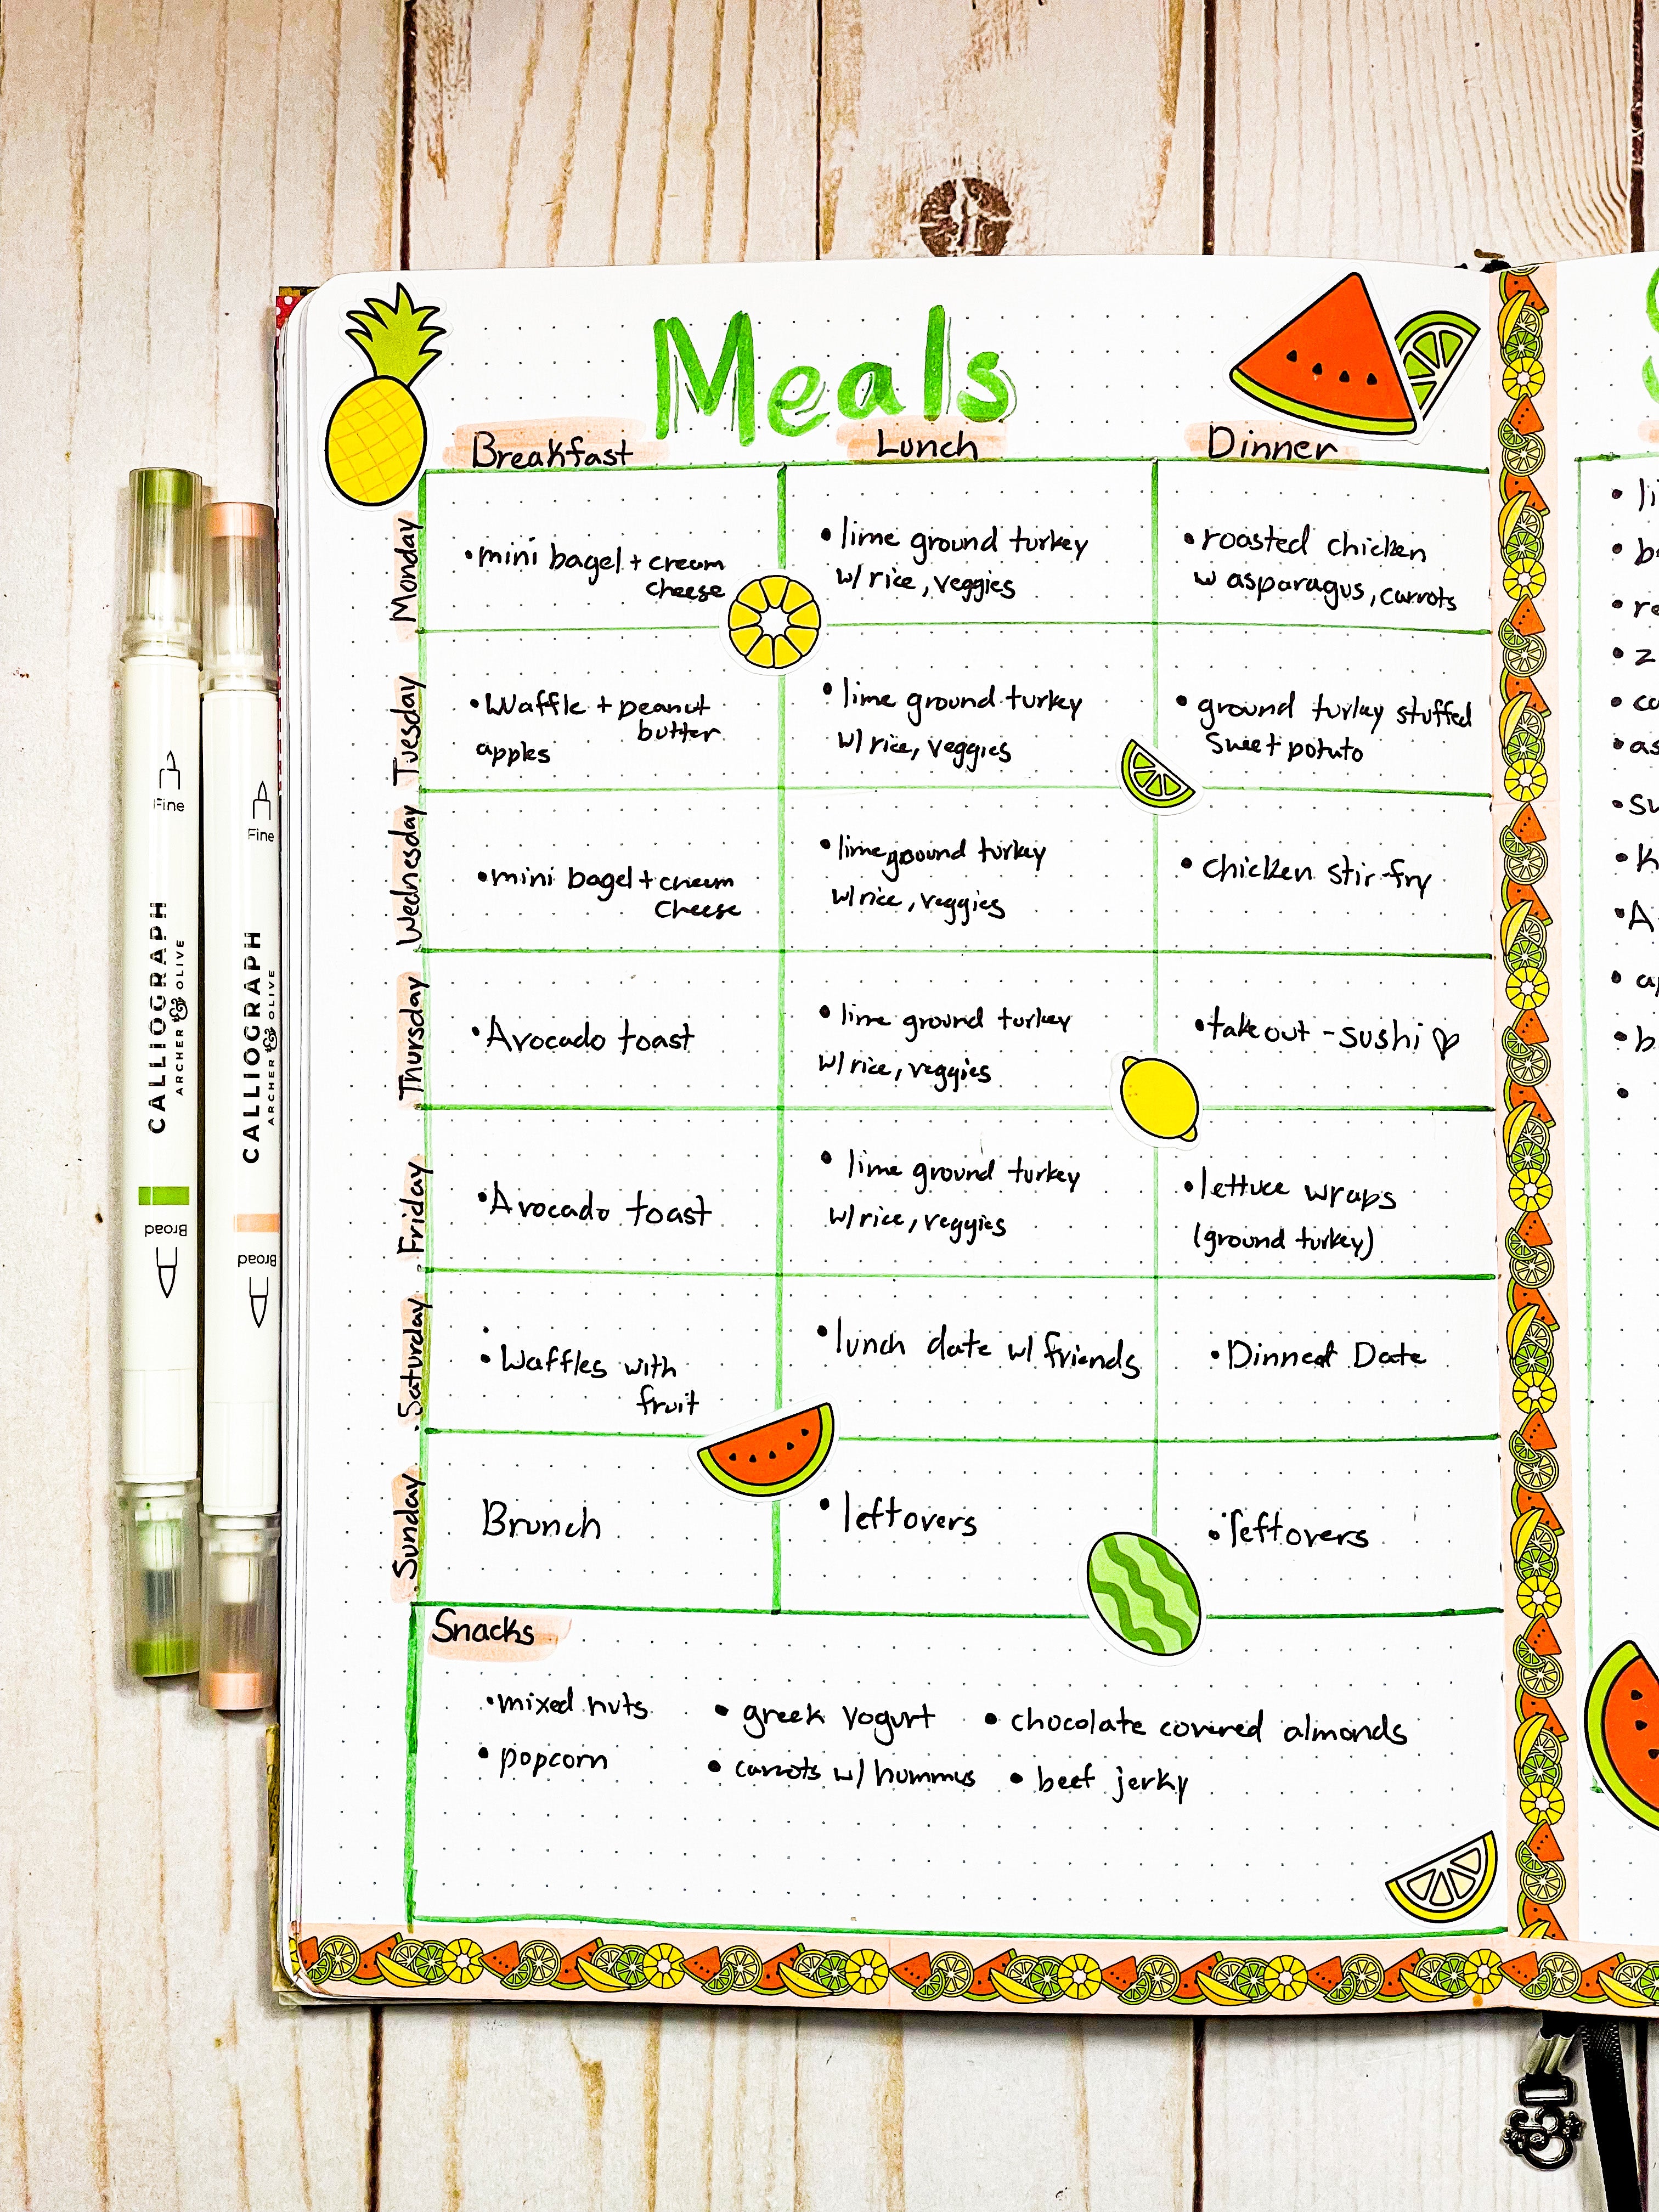 Meals
Breakfast Lunch Dinner
Monday
•mini bagel + cream
cheese
•lime ground turkey
w/ rice, veggies
•roasted chicken
w asparagus, carrots
Tuesday
•Waffle + peanut
butter
apples
•lime ground turkey
w/ rice, veggies
•ground turkey stuffed
Sweet potato
Wednesday
•mini bagel + cream
Cheese
•lime ground turkey
w/ rice, veggies
•chicken stir-fry
Thursday
•Avocado toast
•lime ground turkey
w/ rice, veggies
•takeout - sushi ♡
Friday
•Avocado toast
•lime ground turkey
w/ rice, veggies
•lettuce wraps
(ground turkey)
Saturday
•Waffles with
fruit
•lunch date w/ friends
•Dinner Date
Sunday
Brunch
•leftovers
•leftovers
Snacks
•mixed nuts •greek yogurt •chocolate covered almonds
•popcorn •carrots w/ hummus •beef jerky
Fine
CALLIOGRAPH
ARCHER & OLIVE
Broad
Fine
CALLIOGRAPH
ARCHER & OLIVE
Broad